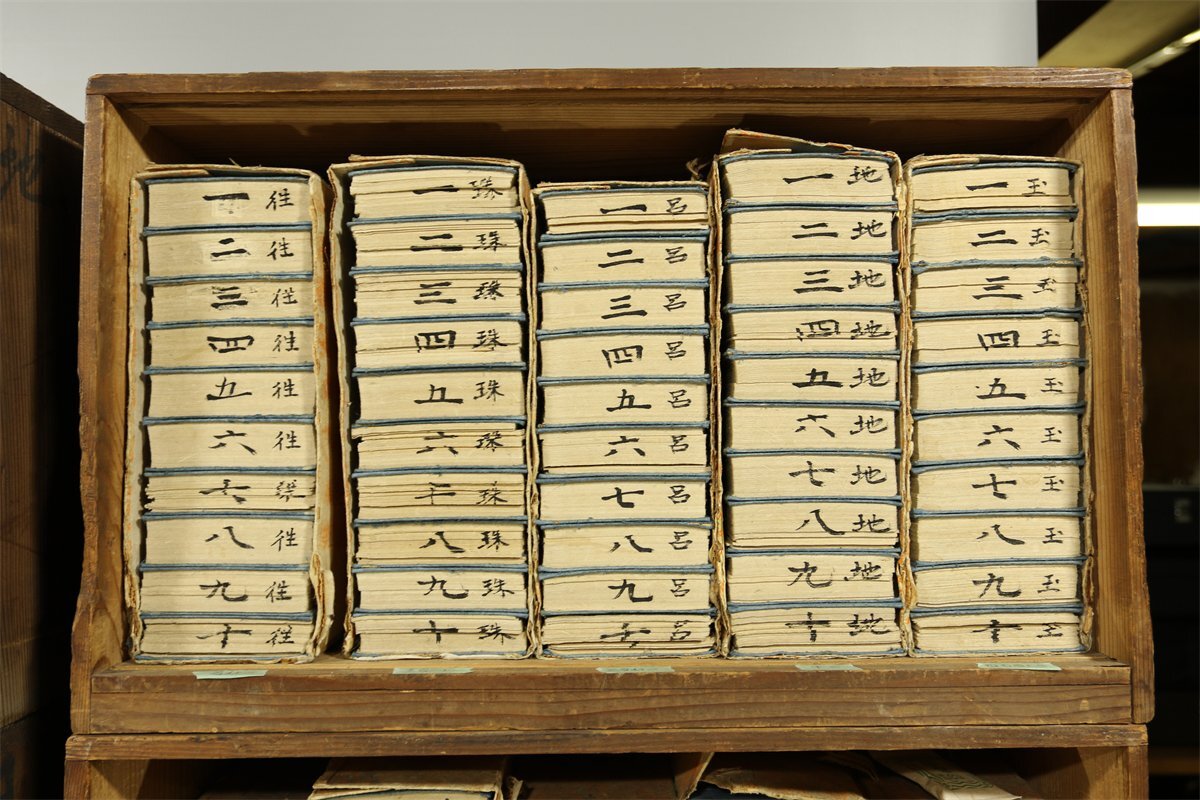 玉一
玉二
玉三
玉四
玉五
玉六
玉七
玉八
玉九
玉十
地一
地二
地三
地四
地五
地六
地七
地八
地九
地十
呂一
呂二
呂三
呂四
呂五
呂六
呂七
呂八
呂九
呂十
珠一
珠二
珠三
珠四
珠五
珠六
珠七
珠八
珠九
珠十
徃一
徃二
徃三
徃四
徃五
徃六
徃七
徃八
徃九
徃十